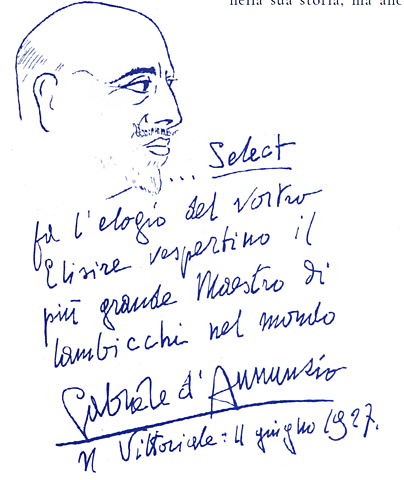 nella sua storia, ma anc
... Select
fa l'elogio del Vostro
Elisire vespertino il
più grande Maestro di
lambicchi nel mondo
Gabriele d'Annunzio
Il Vittoriale: 11 giugno 1927.